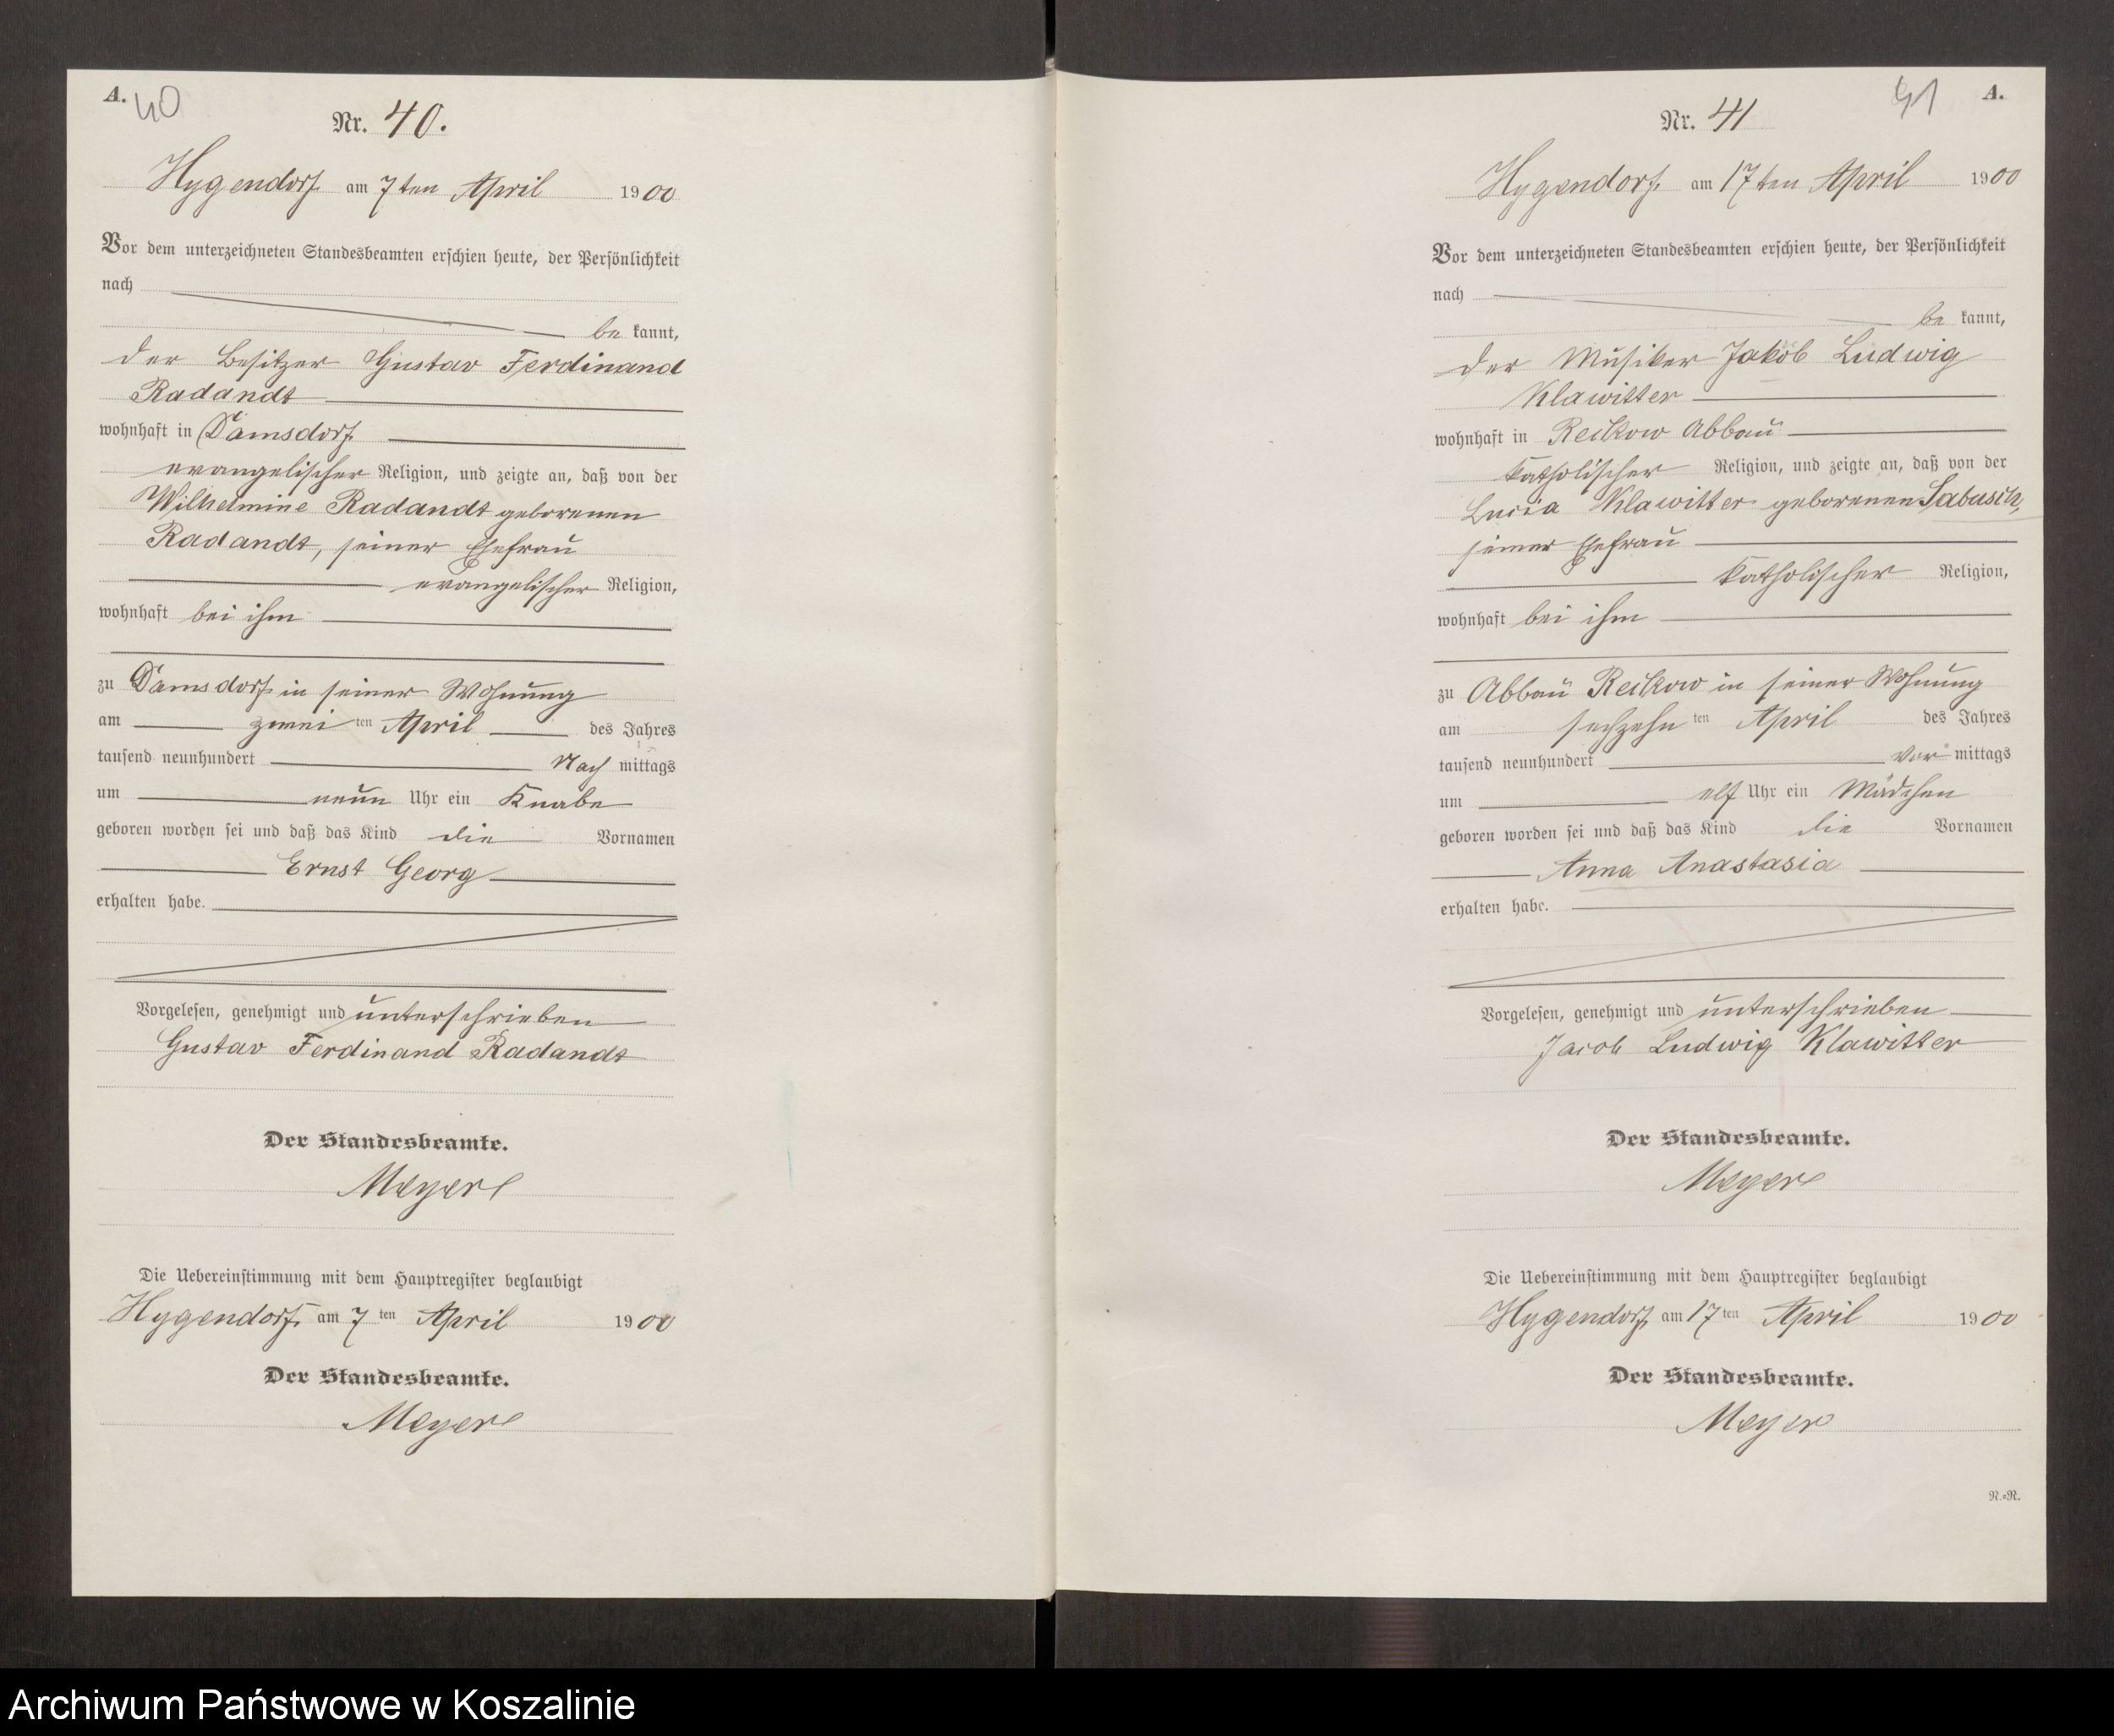 A.
40
Nr. 40.
Hygendorf am 7ten April 1900
Vor dem unterzeichneten Standesbeamten erschien heute, der Persönlichkeit
nach
be kannt,
der Besitzer Gustav Ferdinand
Radandt
wohnhaft in Damsdorf
evangelischer Religion, und zeigte an, daß von der
Wilhelmine Radandt geborenen
Radandt, seiner Ehefrau
evangelischer Religion,
wohnhaft bei ihm
zu Damsdorf in seiner Wohnung
am zwei ten April des Jahres
tausend neunhundert Nach mittags
um neun Uhr ein Knabe
geboren worden sei und daß das Kind die Vornamen
Ernst Georg
erhalten habe.
Vorgelesen, genehmigt und unterschrieben
Gustav Ferdinand Radandt
Der Standesbeamte.
Meyer
Die Uebereinstimmung mit dem Hauptregister beglaubigt
Hygendorf, am 7 ten April 1900
Der Standesbeamte.
Meyer
41
A.
Nr. 41
Hygendorf, am 17ten April 1900
Vor dem unterzeichneten Standesbeamten erschien heute, der Persönlichkeit
nach
be kannt,
der Musiker Jakob Ludwig
Klawitter
wohnhaft in Reckow Abbau
katholischer Religion, und zeigte an, daß von der
Lucia Klawitter geborenen
seiner Ehefrau
katholischer Religion,
wohnhaft bei ihm
zu Abbau Reckow in seiner Wohnung
am sechzehn ten April des Jahres
tausend neunhundert Vor mittags
um elf Uhr ein Mädchen
geboren worden sei und daß das Kind die Vornamen
Anna Anastasia
erhalten habe.
Vorgelesen, genehmigt und unterschrieben
Jacob Ludwig Klawitter
Der Standesbeamte.
Meyer
Die Uebereinstimmung mit dem Hauptregister beglaubigt
Hygendorf, am 17 ten April 1900
Der Standesbeamte.
Meyer
N.=N.
Archiwum Państwowe w Koszalinie